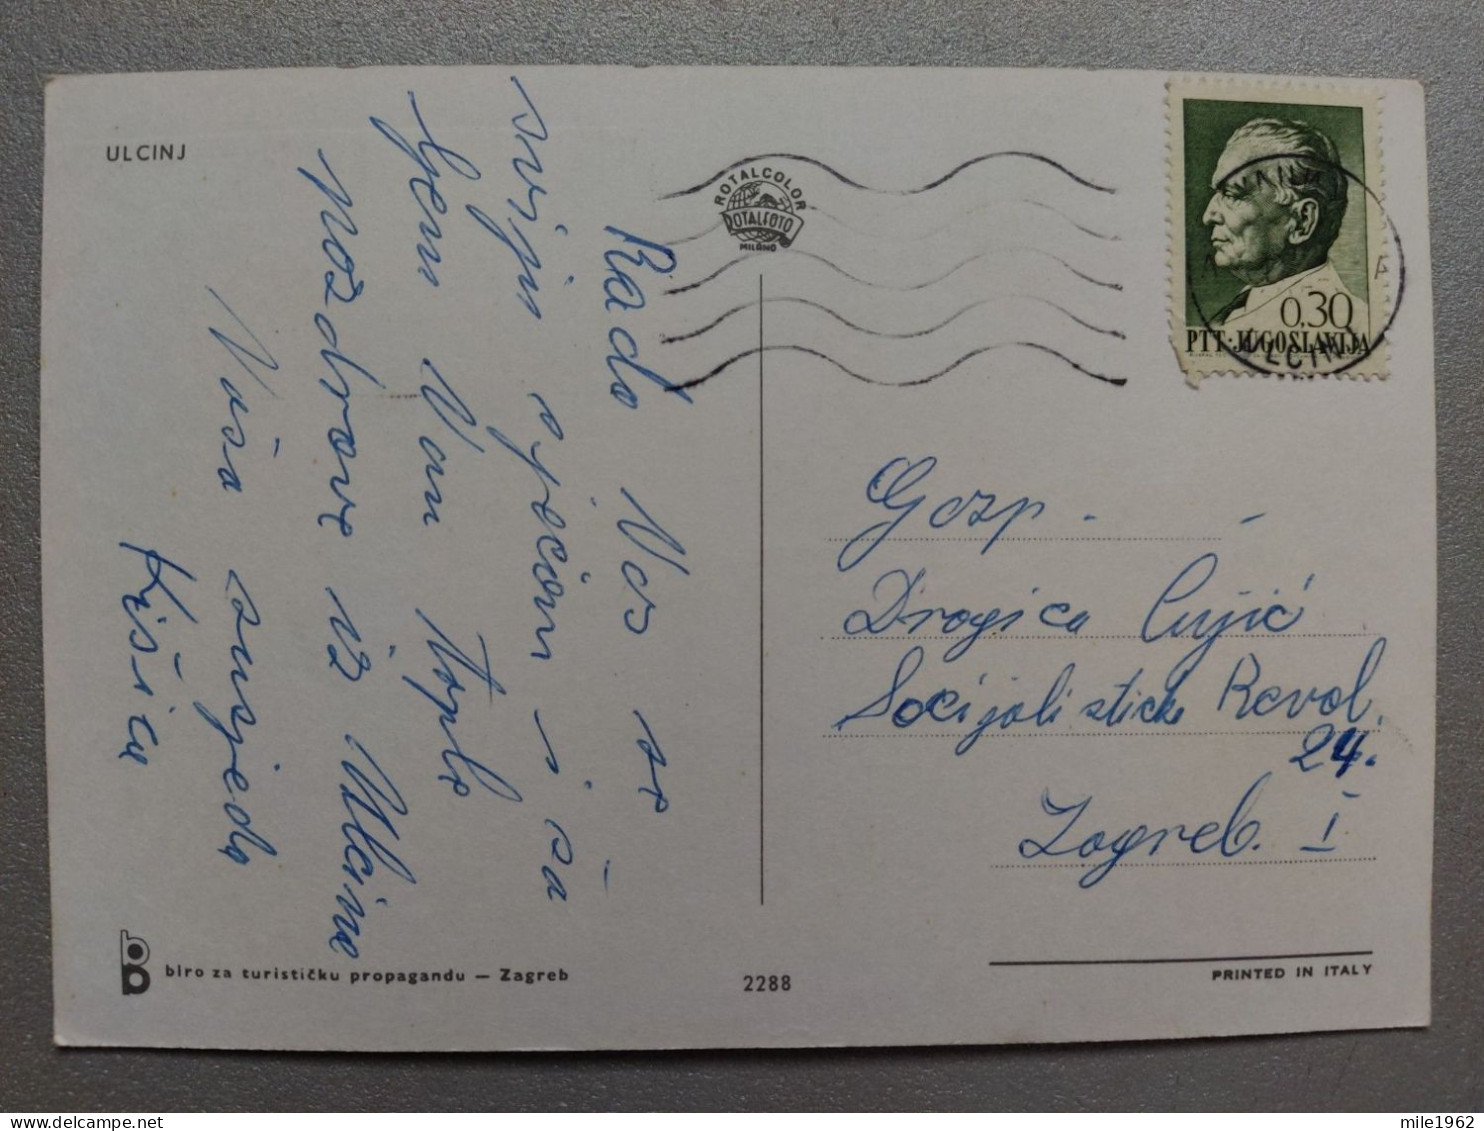 ULCINJ
ROTALCOLOR
ROTALFOTO
MILANO
0,30
PTT·JUGOSLAVIJA
Rado Vas se
svijn sjećam i ša
ljem Vam tople
pozdrave iz Ulcina
Vaša susjeda
Kišica
Gosp.
Dragica Cujić
Socijalističke Revol.
24.
Zagreb. I
biro za turističku propagandu — Zagreb
2288
PRINTED IN ITALY
mile1962